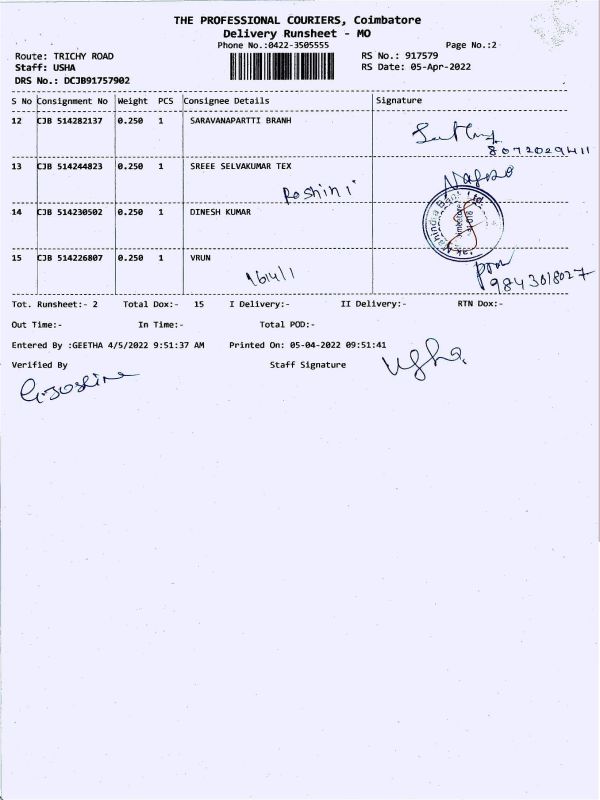 THE PROFESSIONAL COURIERS, Coimbatore
Delivery Runsheet - MO
Phone No.:0422-3505555 Page No.:2
Route: TRICHY ROAD RS No.: 917579
Staff: USHA RS Date: 05-Apr-2022
DRS No.: DCJB91757902
S No Consignment No Weight PCS Consignee Details Signature
12 CJB 514282137 0.250 1 SARAVANAPARTTI BRANH
8072029411
13 CJB 514244823 0.250 1 SREEE SELVAKUMAR TEX
Roshini
14 CJB 514230502 0.250 1 DINESH KUMAR
15 CJB 514226807 0.250 1 VRUN
9843018027
Tot. Runsheet:- 2 Total Dox:- 15 I Delivery:- II Delivery:- RTN Dox:-
Out Time:- In Time:- Total POD:-
Entered By :GEETHA 4/5/2022 9:51:37 AM Printed On: 05-04-2022 09:51:41
Verified By Staff Signature
Usha